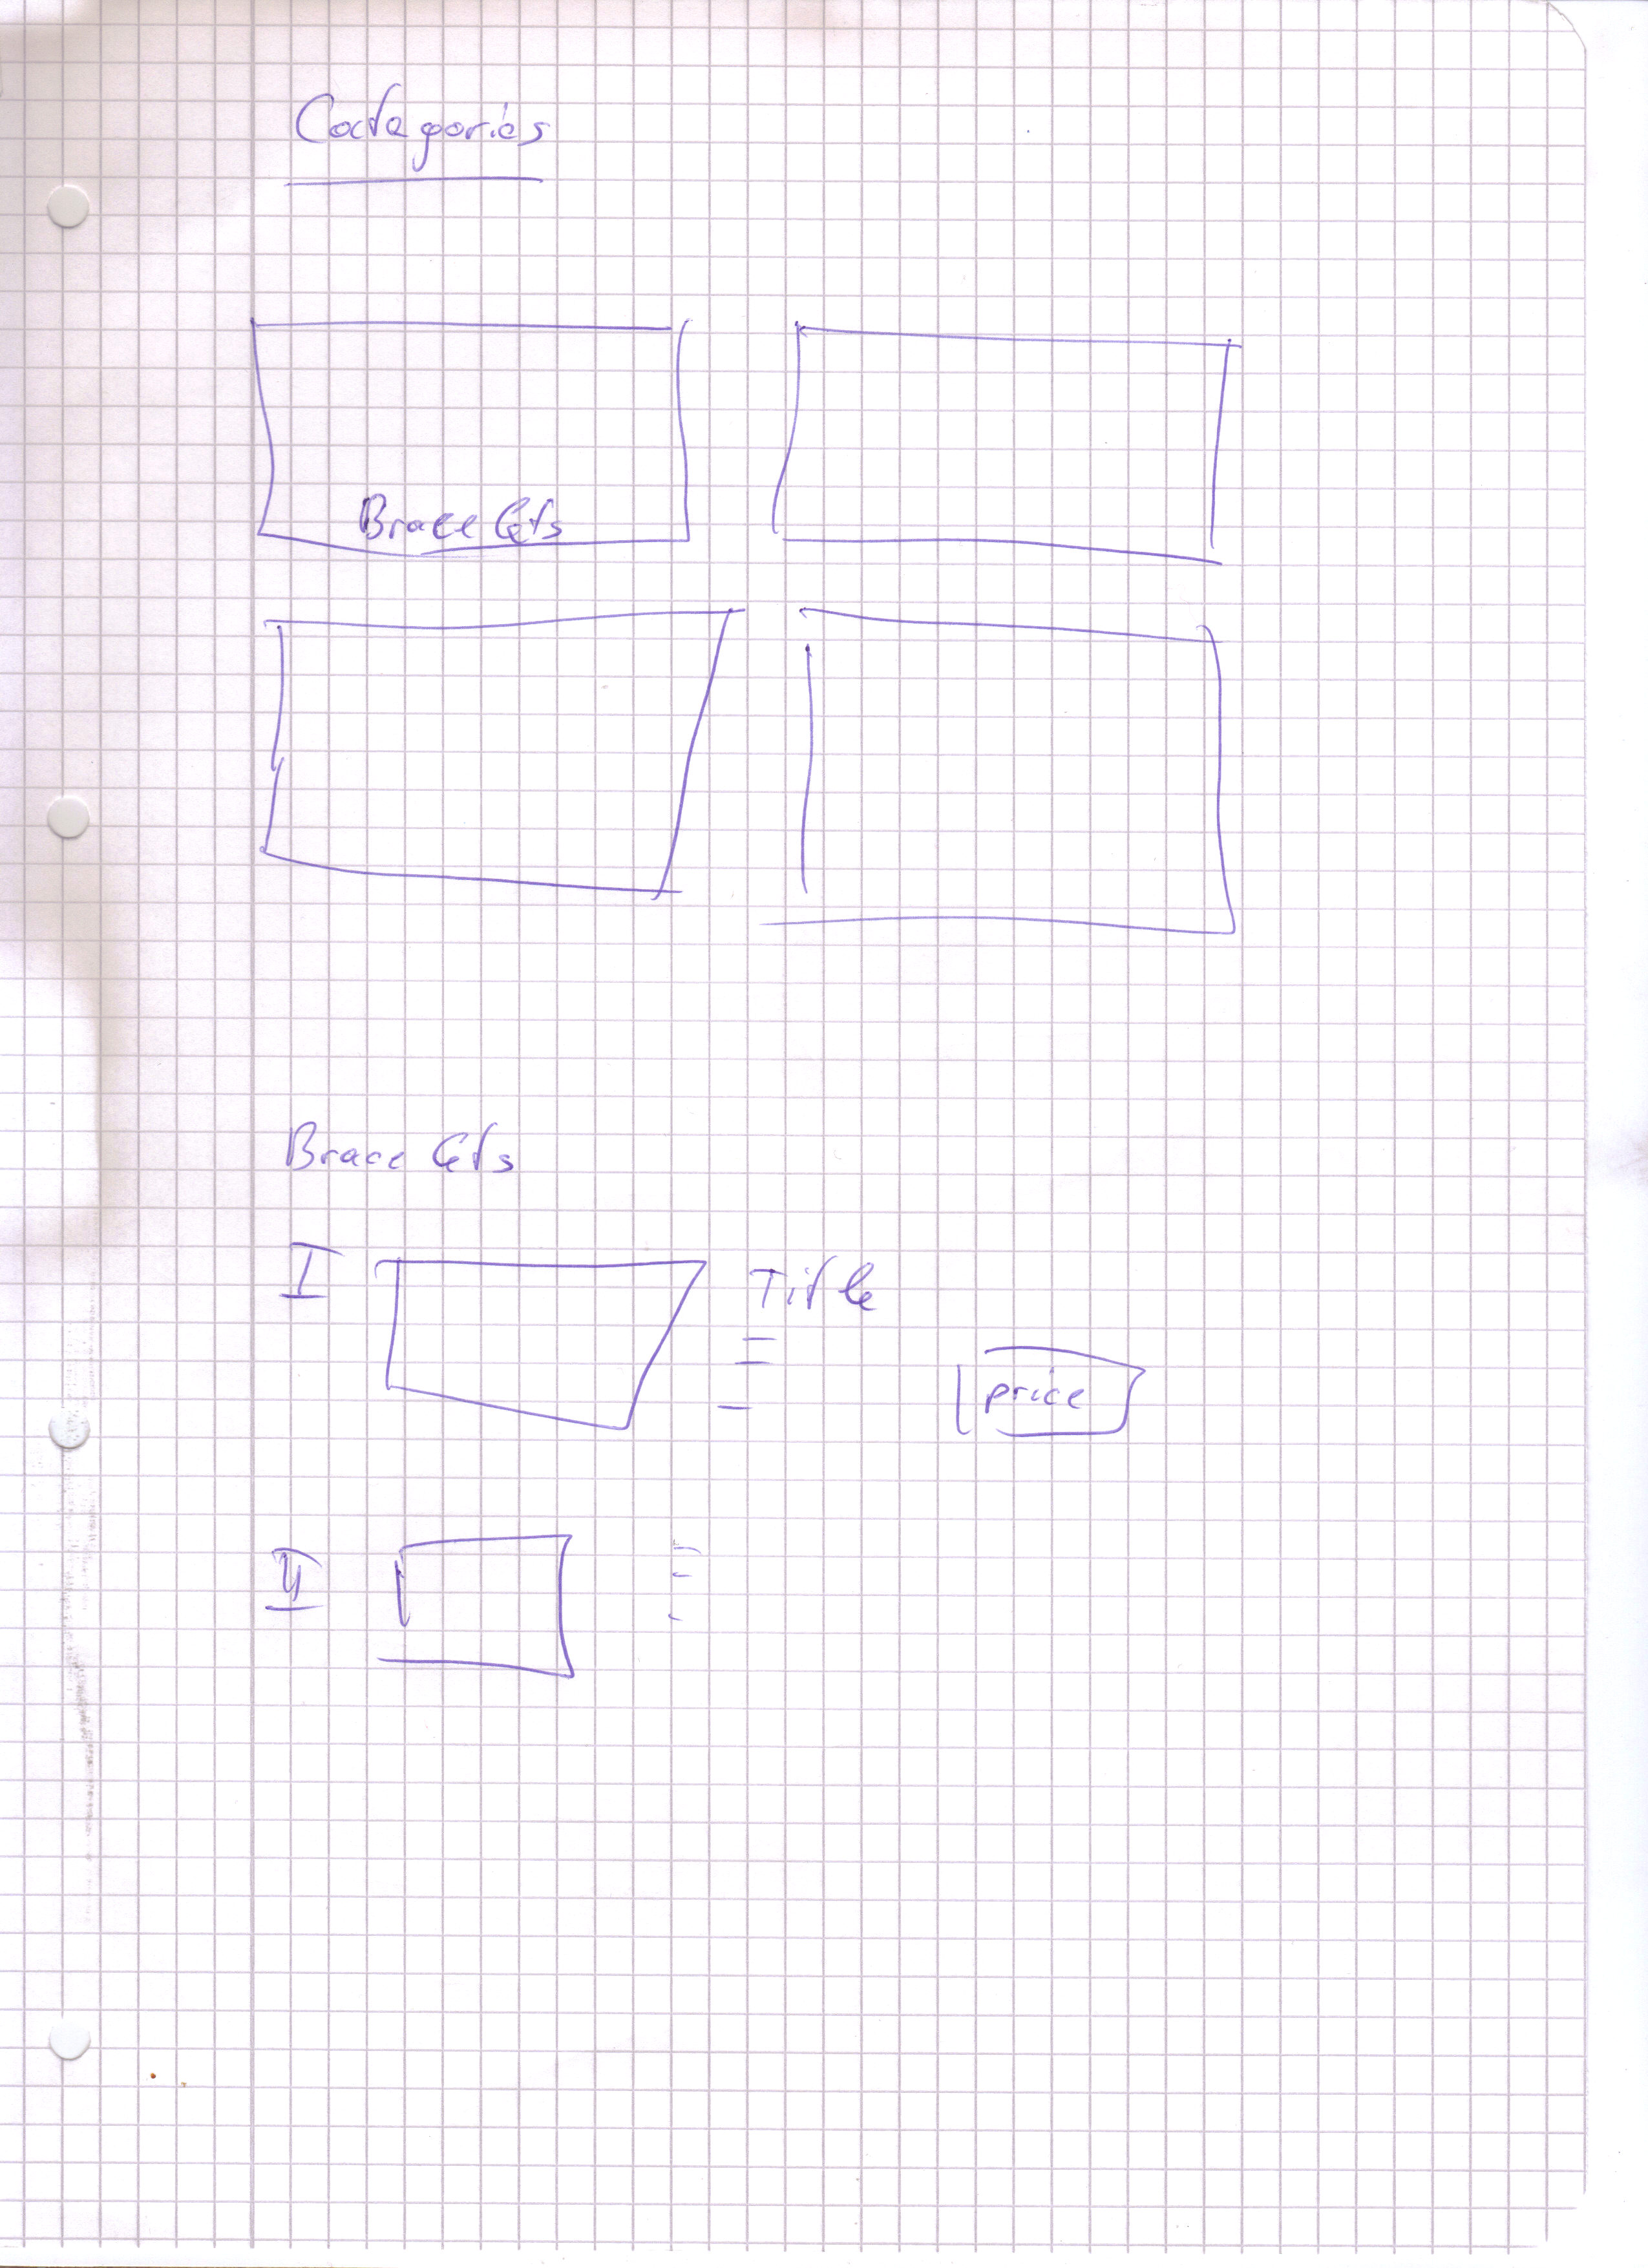 Categories
Bracelets
Bracelets
I
Title
price
II